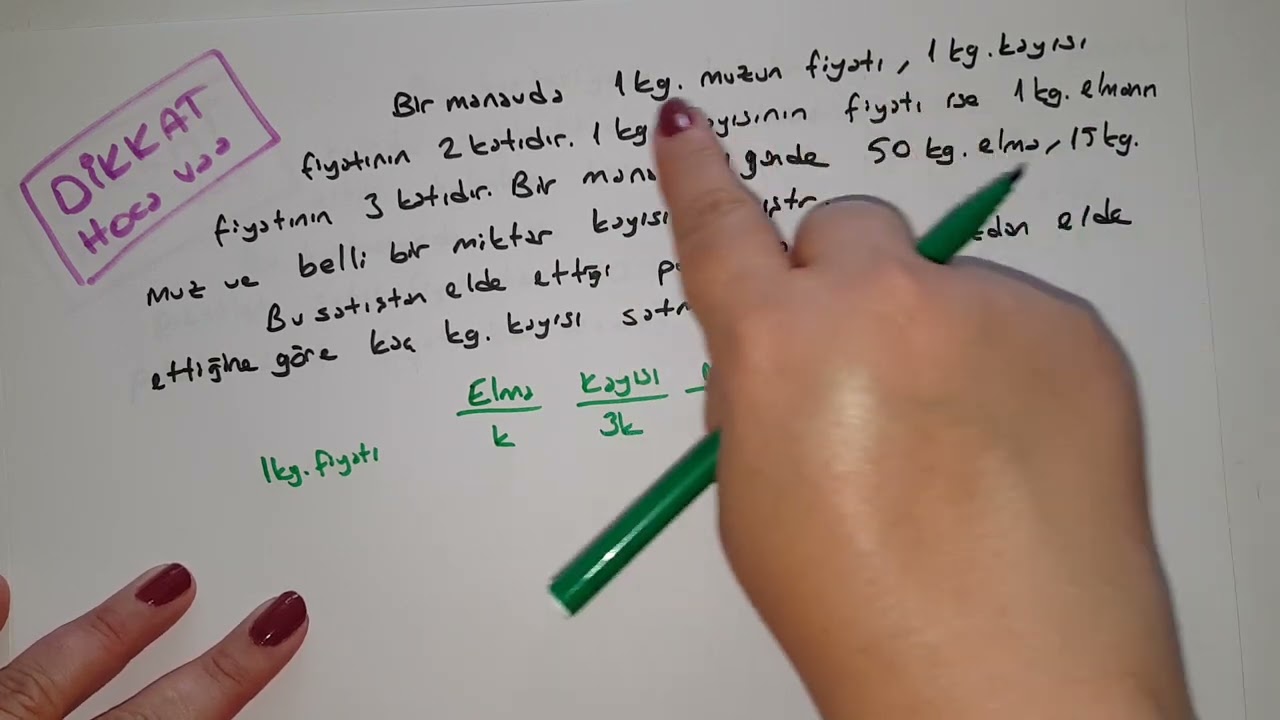 DİKKAT
Hoca var
Bir manavda 1 kg. muzun fiyatı, 1 kg. kayısı
fiyatının 2 katıdır. 1 kg fiyatı ise 1 kg. elmanın
fiyatının 3 katıdır. Bir günde 50 kg. elma, 15 kg.
muz ve belli bir miktar kayısı
Bu satıştan elde ettiği elde
ettiğine göre kaç kg. kayısı
Elma kayısı
k 3k
1kg. fiyatı